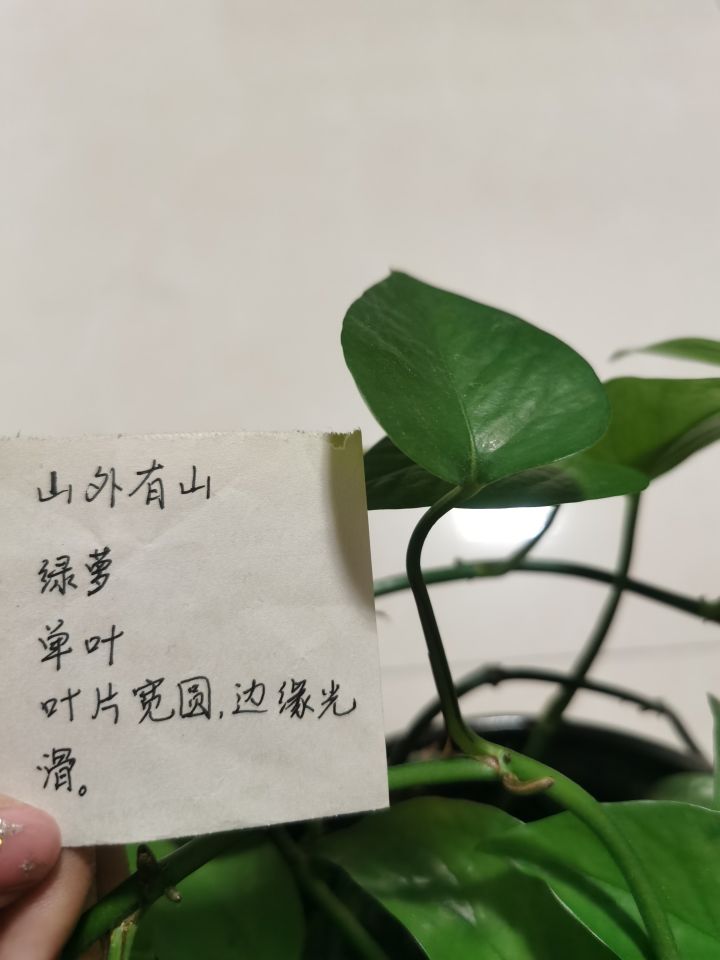 山外有山
绿萝
单叶
叶片宽圆,边缘光
滑。